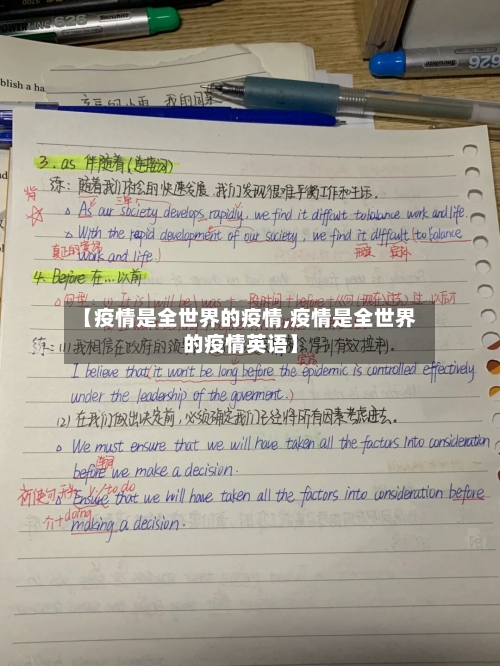 626
626
blish a ha
3. as 伴随着(连接词)
练: 随着我们社会的快速发展, 我们发现很难平衡工作和生活.
As our society develops rapidly, we find it difficult to balance work and life.
With the rapid development of our society, we find it difficult (to balance
work and life.)
4. Before 在...以前
【疫情是全世界的疫情,疫情是全世界
的疫情英语】
I believe that (it won't be long before the epidemic is controlled effectively
under the leadership of the goverment.)
(2) 在我们做出决定前, 必须确定我们已经将所有因素考虑进去。
We must ensure that we will have taken all the factors into consideration
before we make a decision.
祈使句
Ensure that we will have taken all the factors into consideration before
介+doing
making a decision.